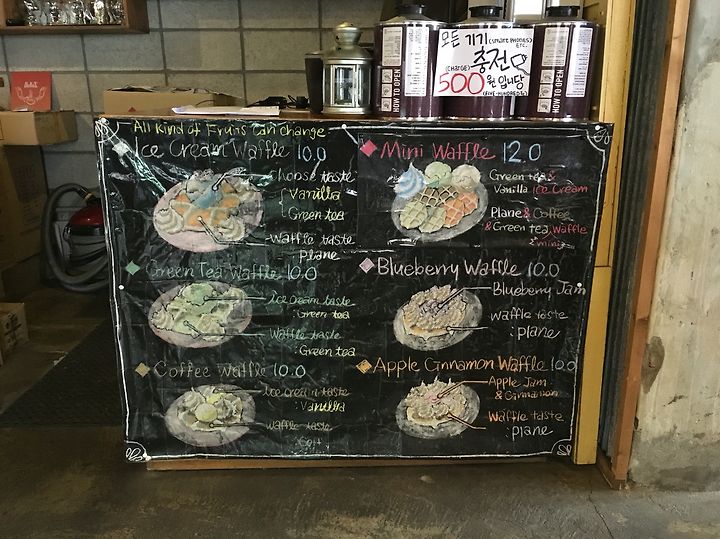 모든 기기 (SMART PHONES) ETC.
(CHARGE) 충전
500원 입니당
(FIVE-HUNDRED)
HOW TO OPEN
HOW TO OPEN
All kind of Fruits can change
Ice Cream Waffle 10.0
Choose taste
Vanilla
Green tea
Waffle taste
plane
Mini Waffle 12.0
Green tea &
Vanilla Ice Cream
Plane & Coffee
& Green tea Waffle
mini
Green Tea Waffle 10.0
Ice cream taste
: Green tea
Waffle taste
: Green tea
Blueberry Waffle 10.0
Blueberry Jam
Waffle taste
: plane
Coffee Waffle 10.0
Ice cream taste
: Vanilla
Waffle taste
Apple Cinnamon Waffle 10.0
Apple Jam
& Cinnamon
Waffle taste
: plane